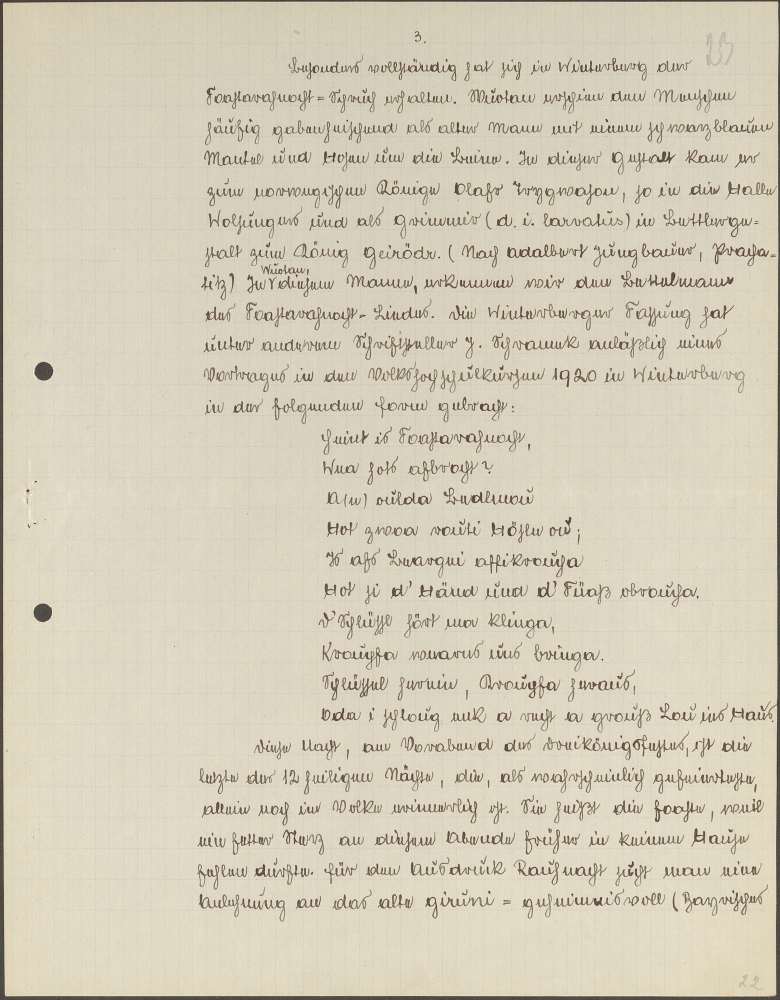 3.
23
Besonders vollständig hat sich in Winterberg der
Foastarahnocht = Spruch erhalten. Wuotan erschien den Menschen
häufig gabenheischend als alter Mann mit einem schwarzblauen
Mantel und Hosen um die Beine. In dieser Gestalt kam er
zum norwegischen Könige Olafr Trygwason, so in die Halle
Wolsungers und als Grimnir (d. i. larvatus) in Bettlerge=
stalt zum König Geirödr. (Nach Adalbert Jungbauer, Pracha-
titz) In Wuotan, diesem Manne, erkennen wir den Bettelmann
des Foastarahnocht-Liedes. Die Winterberger Fassung hat
unter anderem Schriftsteller J. Schramek anläßlich eines
Vortrages in den Volkshochschulkursen 1920 in Winterberg
in der folgenden Form gebracht:
Heint is Foastarahnocht,
Wea hots afbrocht?
A(n) oulda Bedlmou
Hot zwoa routi Hösln ou;
Is afs Beargei affikroucha
Hot si d' Händ und d' Füaß obroucha.
D' Schlüssl hört ma klinga,
Kroupfa wearns uns bringa.
Schlüssel herein, Kroupfa heraus,
Oda i schloug enk a recht a grouß Lou ins Haus.
Diese Nacht, am Vorabend des Dreikönigsfestes, ist die
letzte der 12 heiligen Nächte, die, als wahrscheinlich gefeierteste,
allein noch im Volke erinnerlich ist. Sie heißt die foaste, weil
ein fetter Sterz an diesem Abende früher in keinem Hause
fehlen durfte. Für den Ausdruck Rauhnacht sucht man eine
Anlehnung an das alte giruni = geheimnisvoll (Bayrisches
22